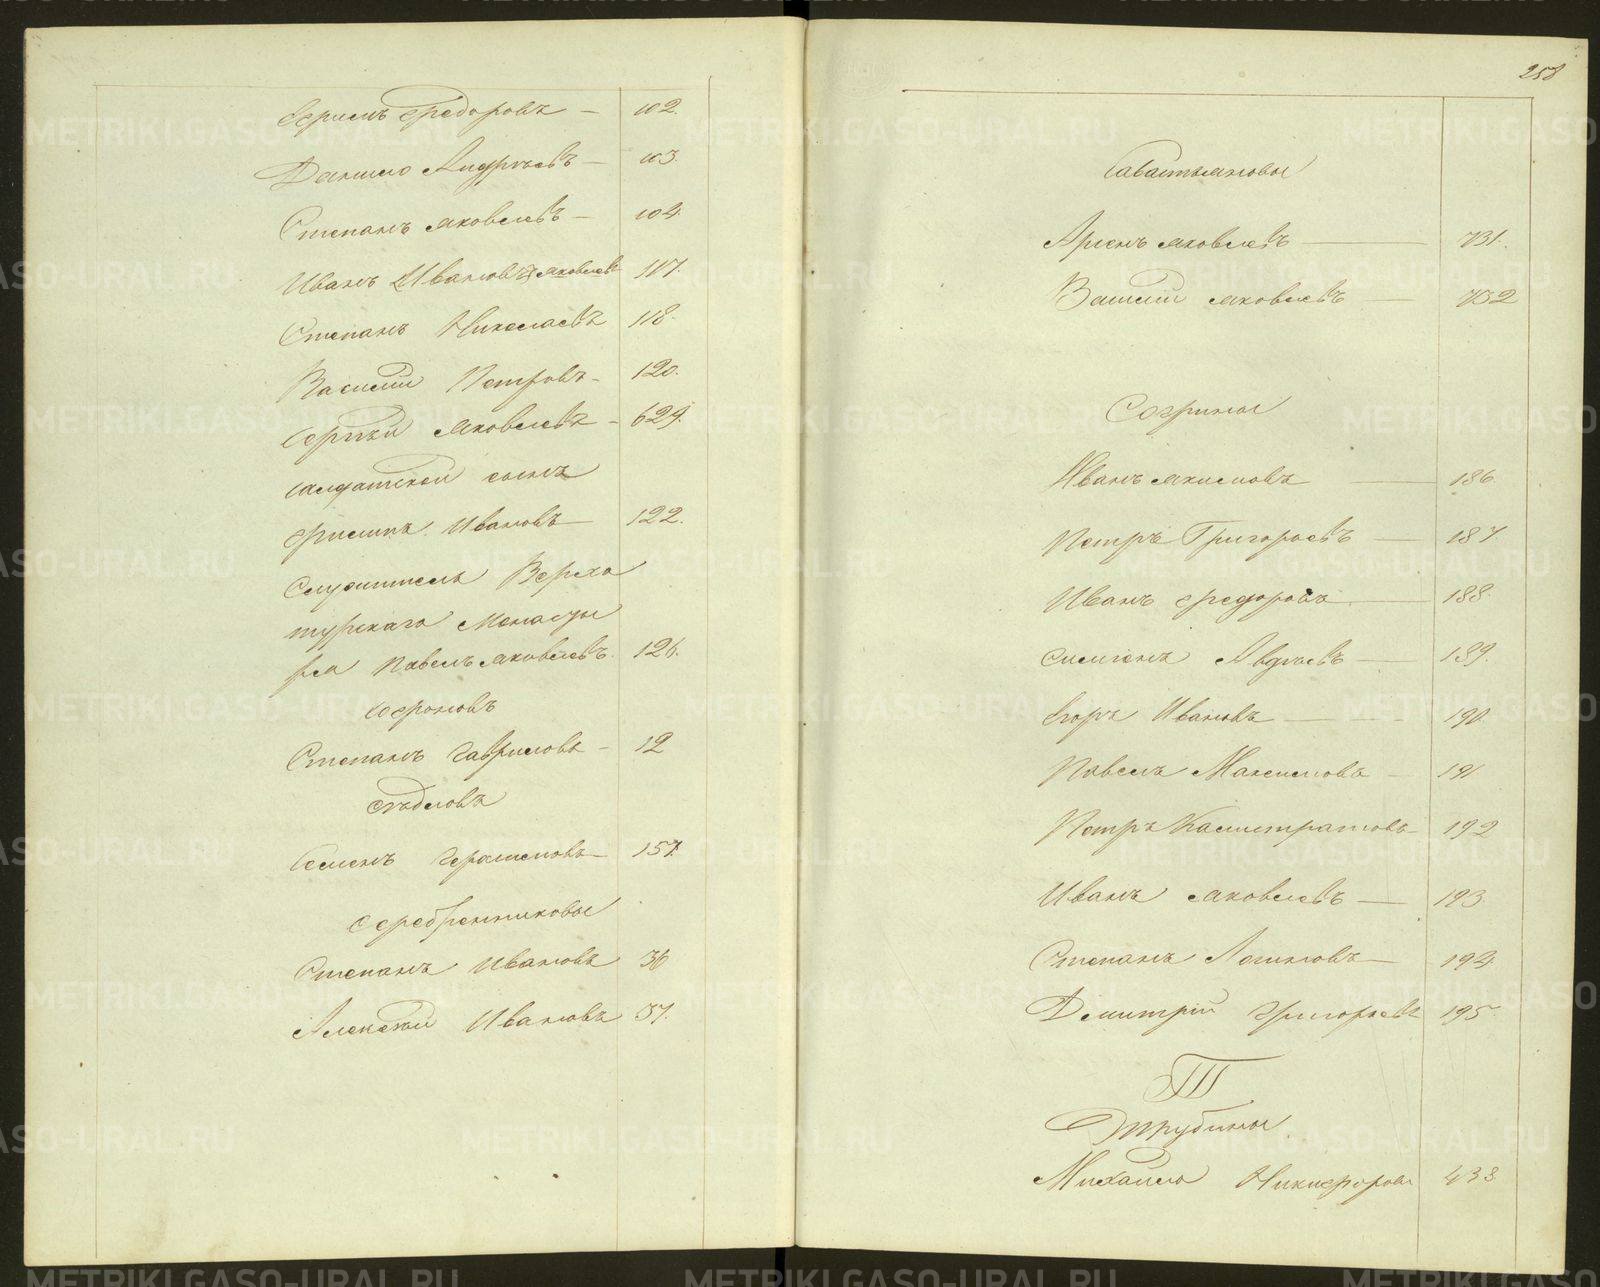 Ефимъ Федоровъ — 102.
Данило Андреевъ — 103.
Степанъ Яковлевъ — 104.
Иванъ (Ивановъ) Яковлевъ 117.
Степанъ Николаевъ 118.
Василий Петровъ — 120.
Сергѣй Яковлевъ — 629.
солдатской сынъ
Филипъ Ивановъ — 122.
Служитель Верхо
турскаго Монасты
ря Павелъ Яковлевъ. 126.
Софоновъ
Степанъ Гавриловъ — 12
Сѣдловъ
Семенъ Герасимовъ — 157.
Серебренниковы
Степанъ Ивановъ 36
Алексѣй Ивановъ 37.
258
Савастьяновы
Яковлевъ — 731.
Василий Яковлевъ — 732
Согрины
Иванъ Якимовъ — 186.
Петръ Григорьевъ — 187
Иванъ Федоровъ — 188.
Симионъ Авдѣевъ — 189.
Егоръ Ивановъ — 190.
Павелъ Максимовъ — 191
Петръ Калистратовъ — 192
Иванъ Яковлевъ — 193.
Степанъ Логиновъ — 194.
Димитрій Григорьевъ 195.
Т
Трубины
Михайло Никифоровъ 438
METRIKI.GASO-URAL.RU